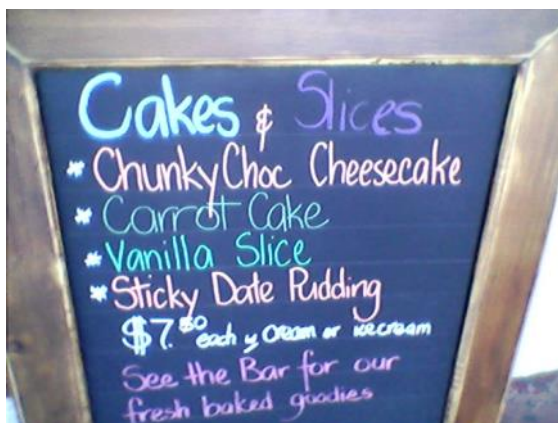 Cakes & Slices
* Chunky Choc Cheesecake
* Carrot Cake
* Vanilla Slice
* Sticky Date Pudding
$7.50 each w cream or icecream
See the Bar for our
fresh baked goodies